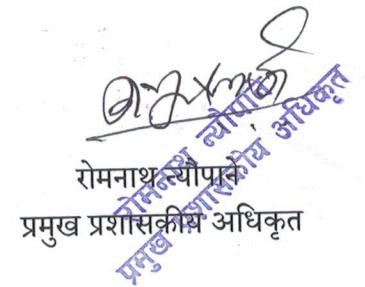 रोमनाथ न्यौपाने
प्रमुख प्रशासकीय अधिकृत
रोमनाथ न्यौपाने
प्रमुख प्रशासकीय अधिकृत